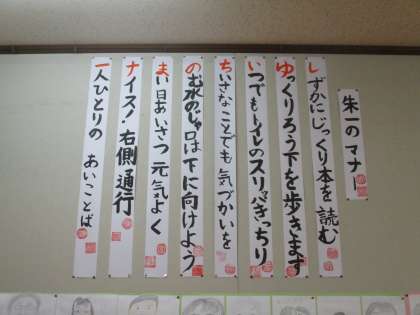 朱一のマナー
しずかにじっくり本を読む
ゆっくりろう下を歩きます
いつでもトイレのスリッパきっちり
ちいさなことでも気づかいを
のむ水のじゃ口は下に向けよう
まい日あいさつ元気よく
ナイス！右側通行
一人ひとりの あいことば